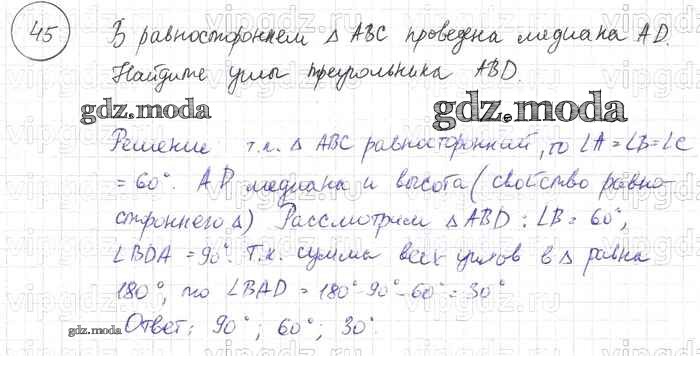 45 В равностороннем △ ABC проведена медиана AD.
Найдите углы треугольника ABD.
gdz.moda gdz.moda
Решение т.к. △ ABC равносторонний, то ∠A = ∠B = ∠C
= 60°. AD медиана и высота (свойство равно-
стороннего △) Рассмотрим △ ABD: ∠B = 60°,
∠BDA = 90°. Т.к. сумма всех углов в △ равна
180°, то ∠BAD = 180° - 90° - 60° = 30°
gdz.moda Ответ: 90°; 60°; 30°.